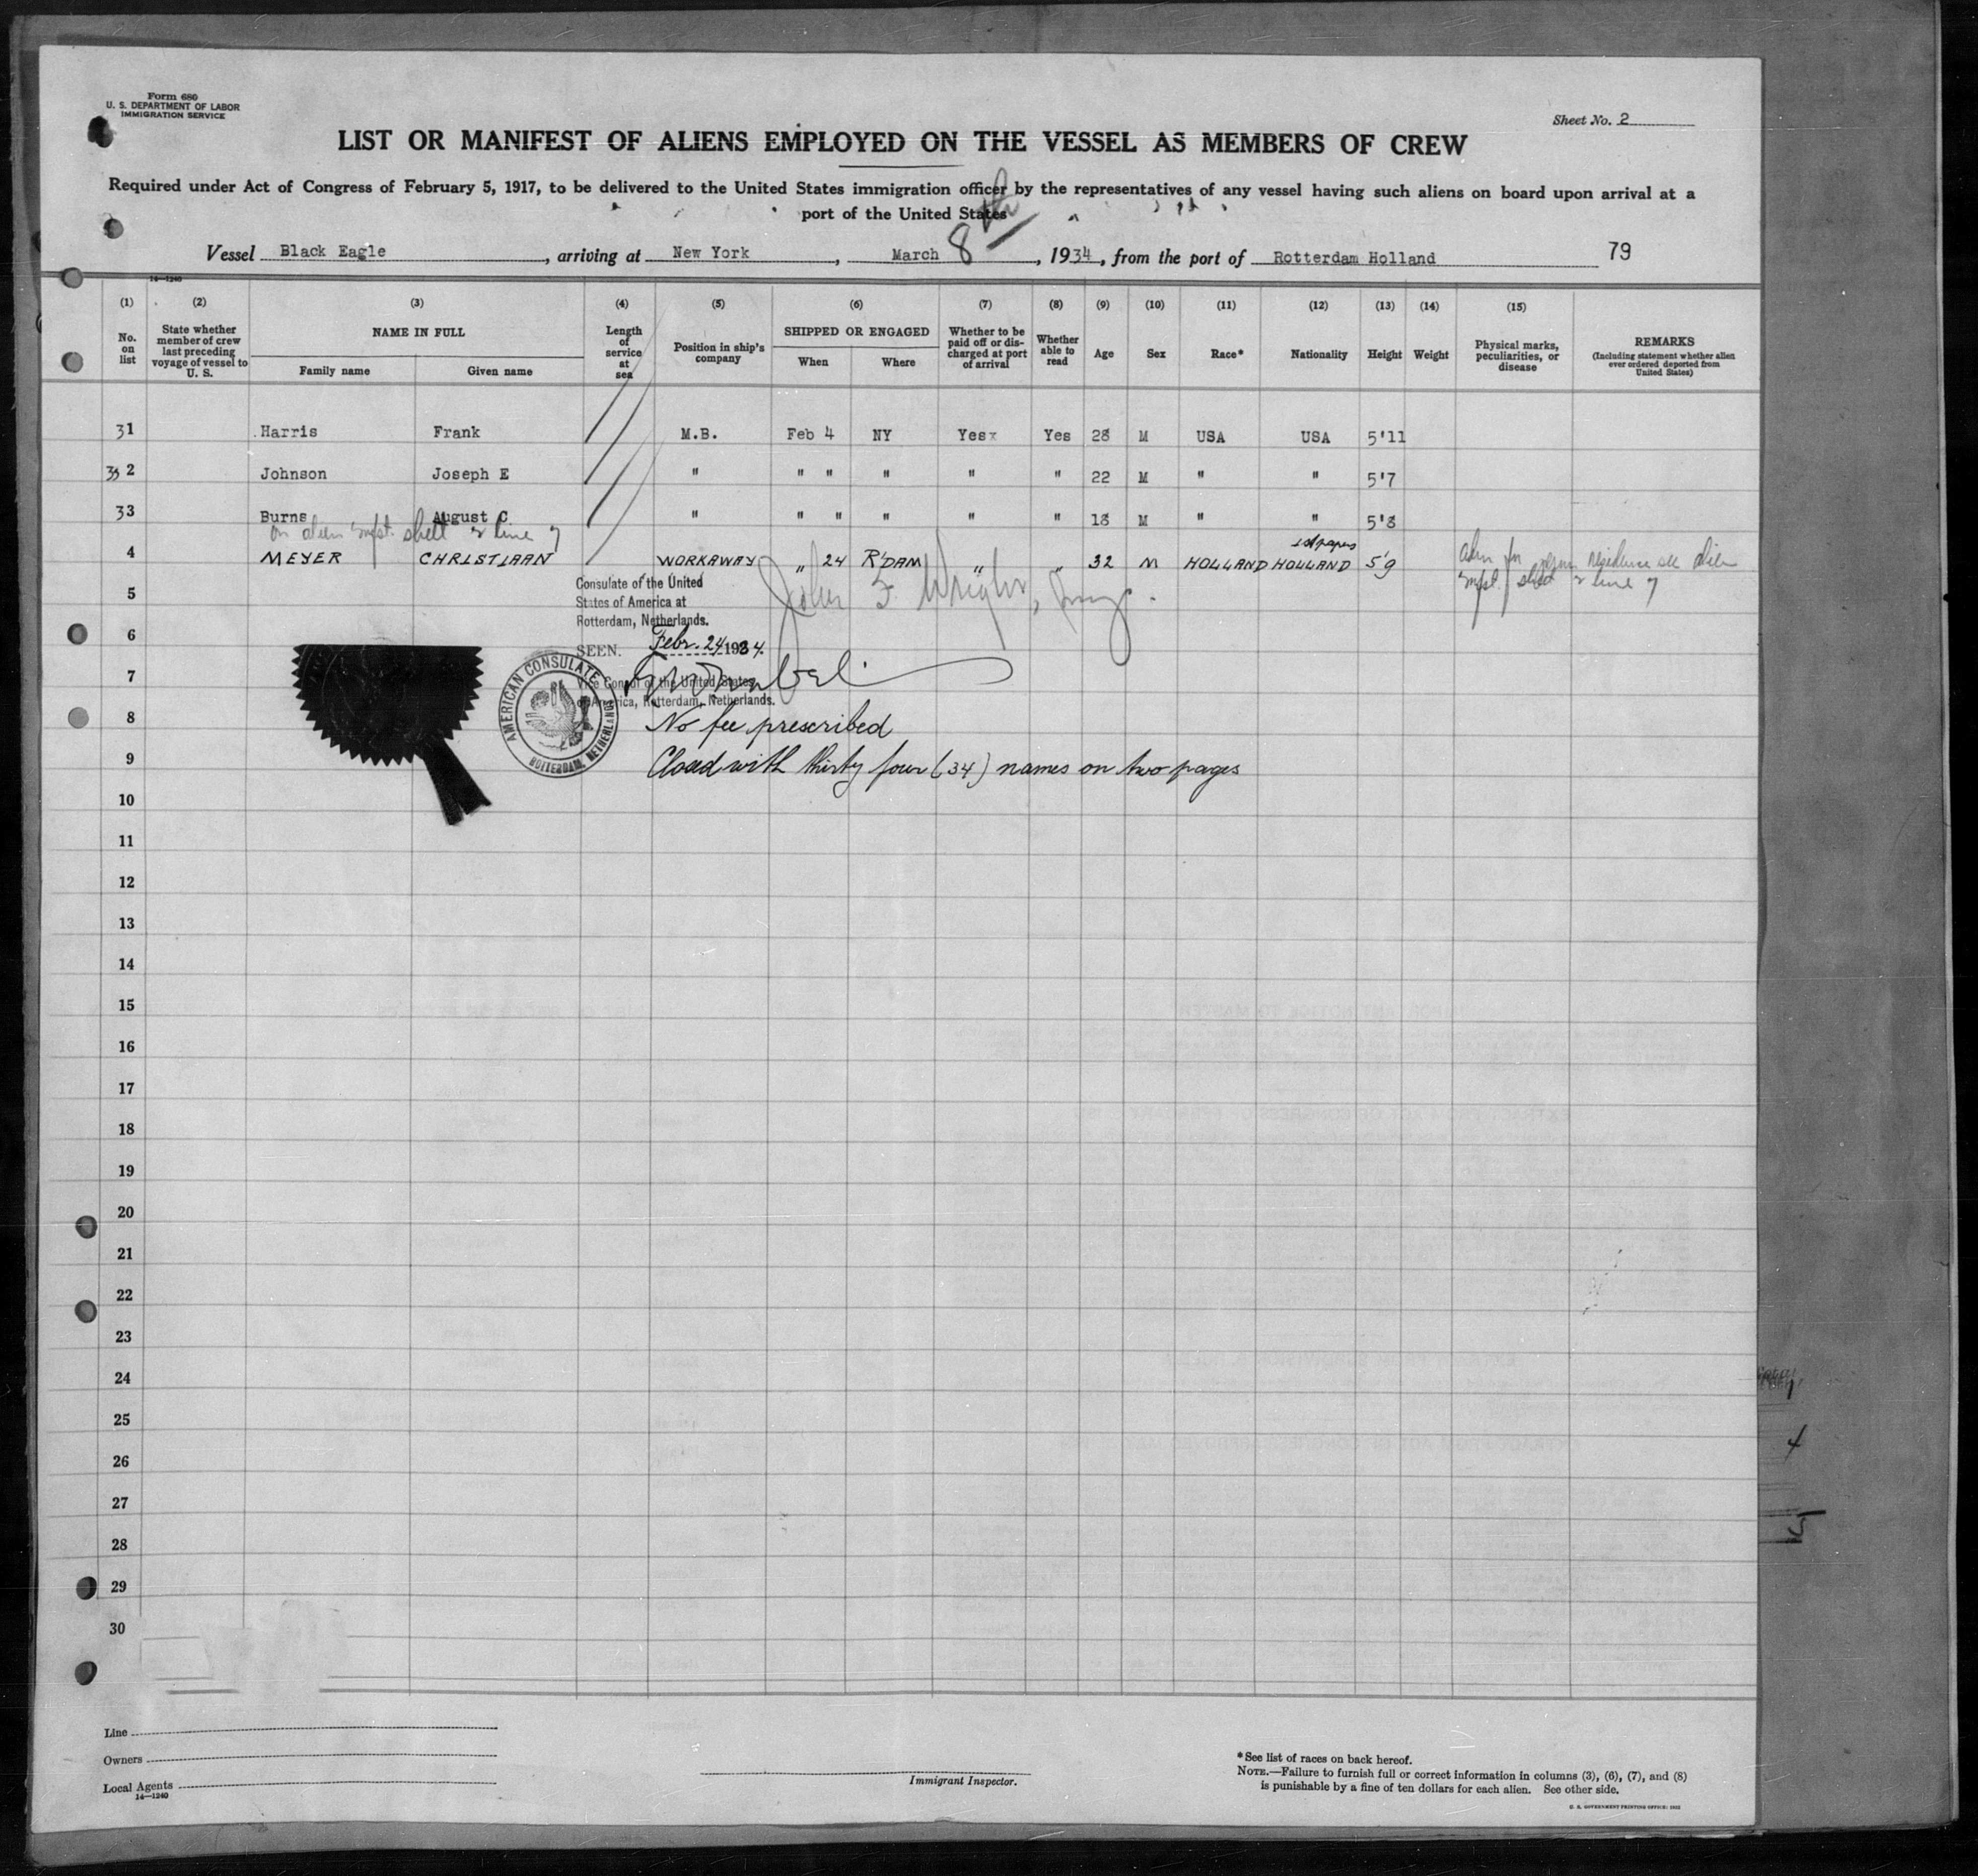 Form 680
U. S. DEPARTMENT OF LABOR
IMMIGRATION SERVICE
Sheet No. 2
LIST OR MANIFEST OF ALIENS EMPLOYED ON THE VESSEL AS MEMBERS OF CREW
Required under Act of Congress of February 5, 1917, to be delivered to the United States immigration officer by the representatives of any vessel having such aliens on board upon arrival at a
port of the United States
Vessel Black Eagle, arriving at New York, March 8th, 1934, from the port of Rotterdam Holland 79
14—1240
(1) (2) (3) (4) (5) (6) (7) (8) (9) (10) (11) (12) (13) (14) (15)
No. on list
State whether member of crew last preceding voyage of vessel to U. S.
NAME IN FULL
Family name Given name
Length of service at sea
Position in ship's company
SHIPPED OR ENGAGED
When Where
Whether to be paid off or discharged at port of arrival
Whether able to read
Age Sex Race* Nationality Height Weight
Physical marks, peculiarities, or disease
REMARKS
(Including statement whether alien ever ordered deported from United States)
31 Harris Frank M.B. Feb 4 NY Yesx Yes 28 M USA USA 5'11
32 Johnson Joseph E " " " " " " 22 M " " 5'7
33 Burns August C " " " " " " 18 M " " 5'8
on alien mfst. sheet 2 line 7
1st papers
4 MEYER CHRISTIAAN WORKAWAY " 24 R'DAM " " 32 M HOLLAND HOLLAND 5'9
residence see alien
mfst. sheet 2 line 7
5
6
7
8
9
10
11
12
13
14
15
16
17
18
19
20
21
22
23
24
25
26
27
28
29
30
Consulate of the United
States of America at
Rotterdam, Netherlands.
SEEN. Febr. 24 1934.
Vice Consul of the United States
of America, Rotterdam, Netherlands.
John F. Wright,
AMERICAN CONSULATE
ROTTERDAM, NETHERLANDS
No fee prescribed
Closed with thirty four (34) names on two pages
Line
Owners
Local Agents
14—1240
Immigrant Inspector.
*See list of races on back hereof.
NOTE.—Failure to furnish full or correct information in columns (3), (6), (7), and (8)
is punishable by a fine of ten dollars for each alien. See other side.
U. S. GOVERNMENT PRINTING OFFICE: 1932